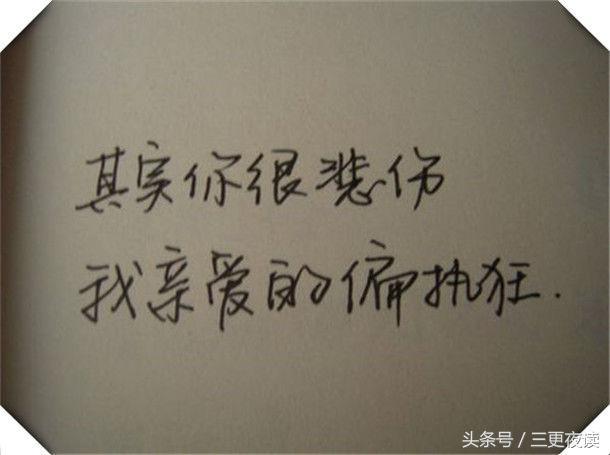 其实你很悲伤
我亲爱的偏执狂.
头条号／三更夜读